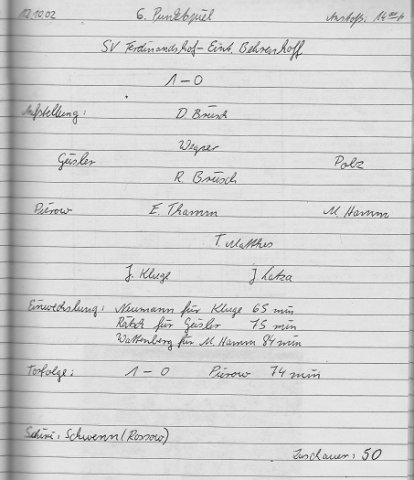 12.10.02 6. Punktspiel Anstoß: 14 00 h
SV Ferdinandshof - Eint. Behrenhoff
1-0
Aufstellung: D. Brüsch
Wegner
Geisler Polz
R. Brüsch
Pürow E. Thamm M. Hamm
T. Matthes
J. Kluge J Latza
Einwechslung: Neumann für Kluge 65 min
Rätsch für Geisler 75 min
Wattenberg für M. Hamm 84 min
Torfolge: 1-0 Pürow 74 min
Schiri: Schwenn (Rossow)
Zuschauer: 50